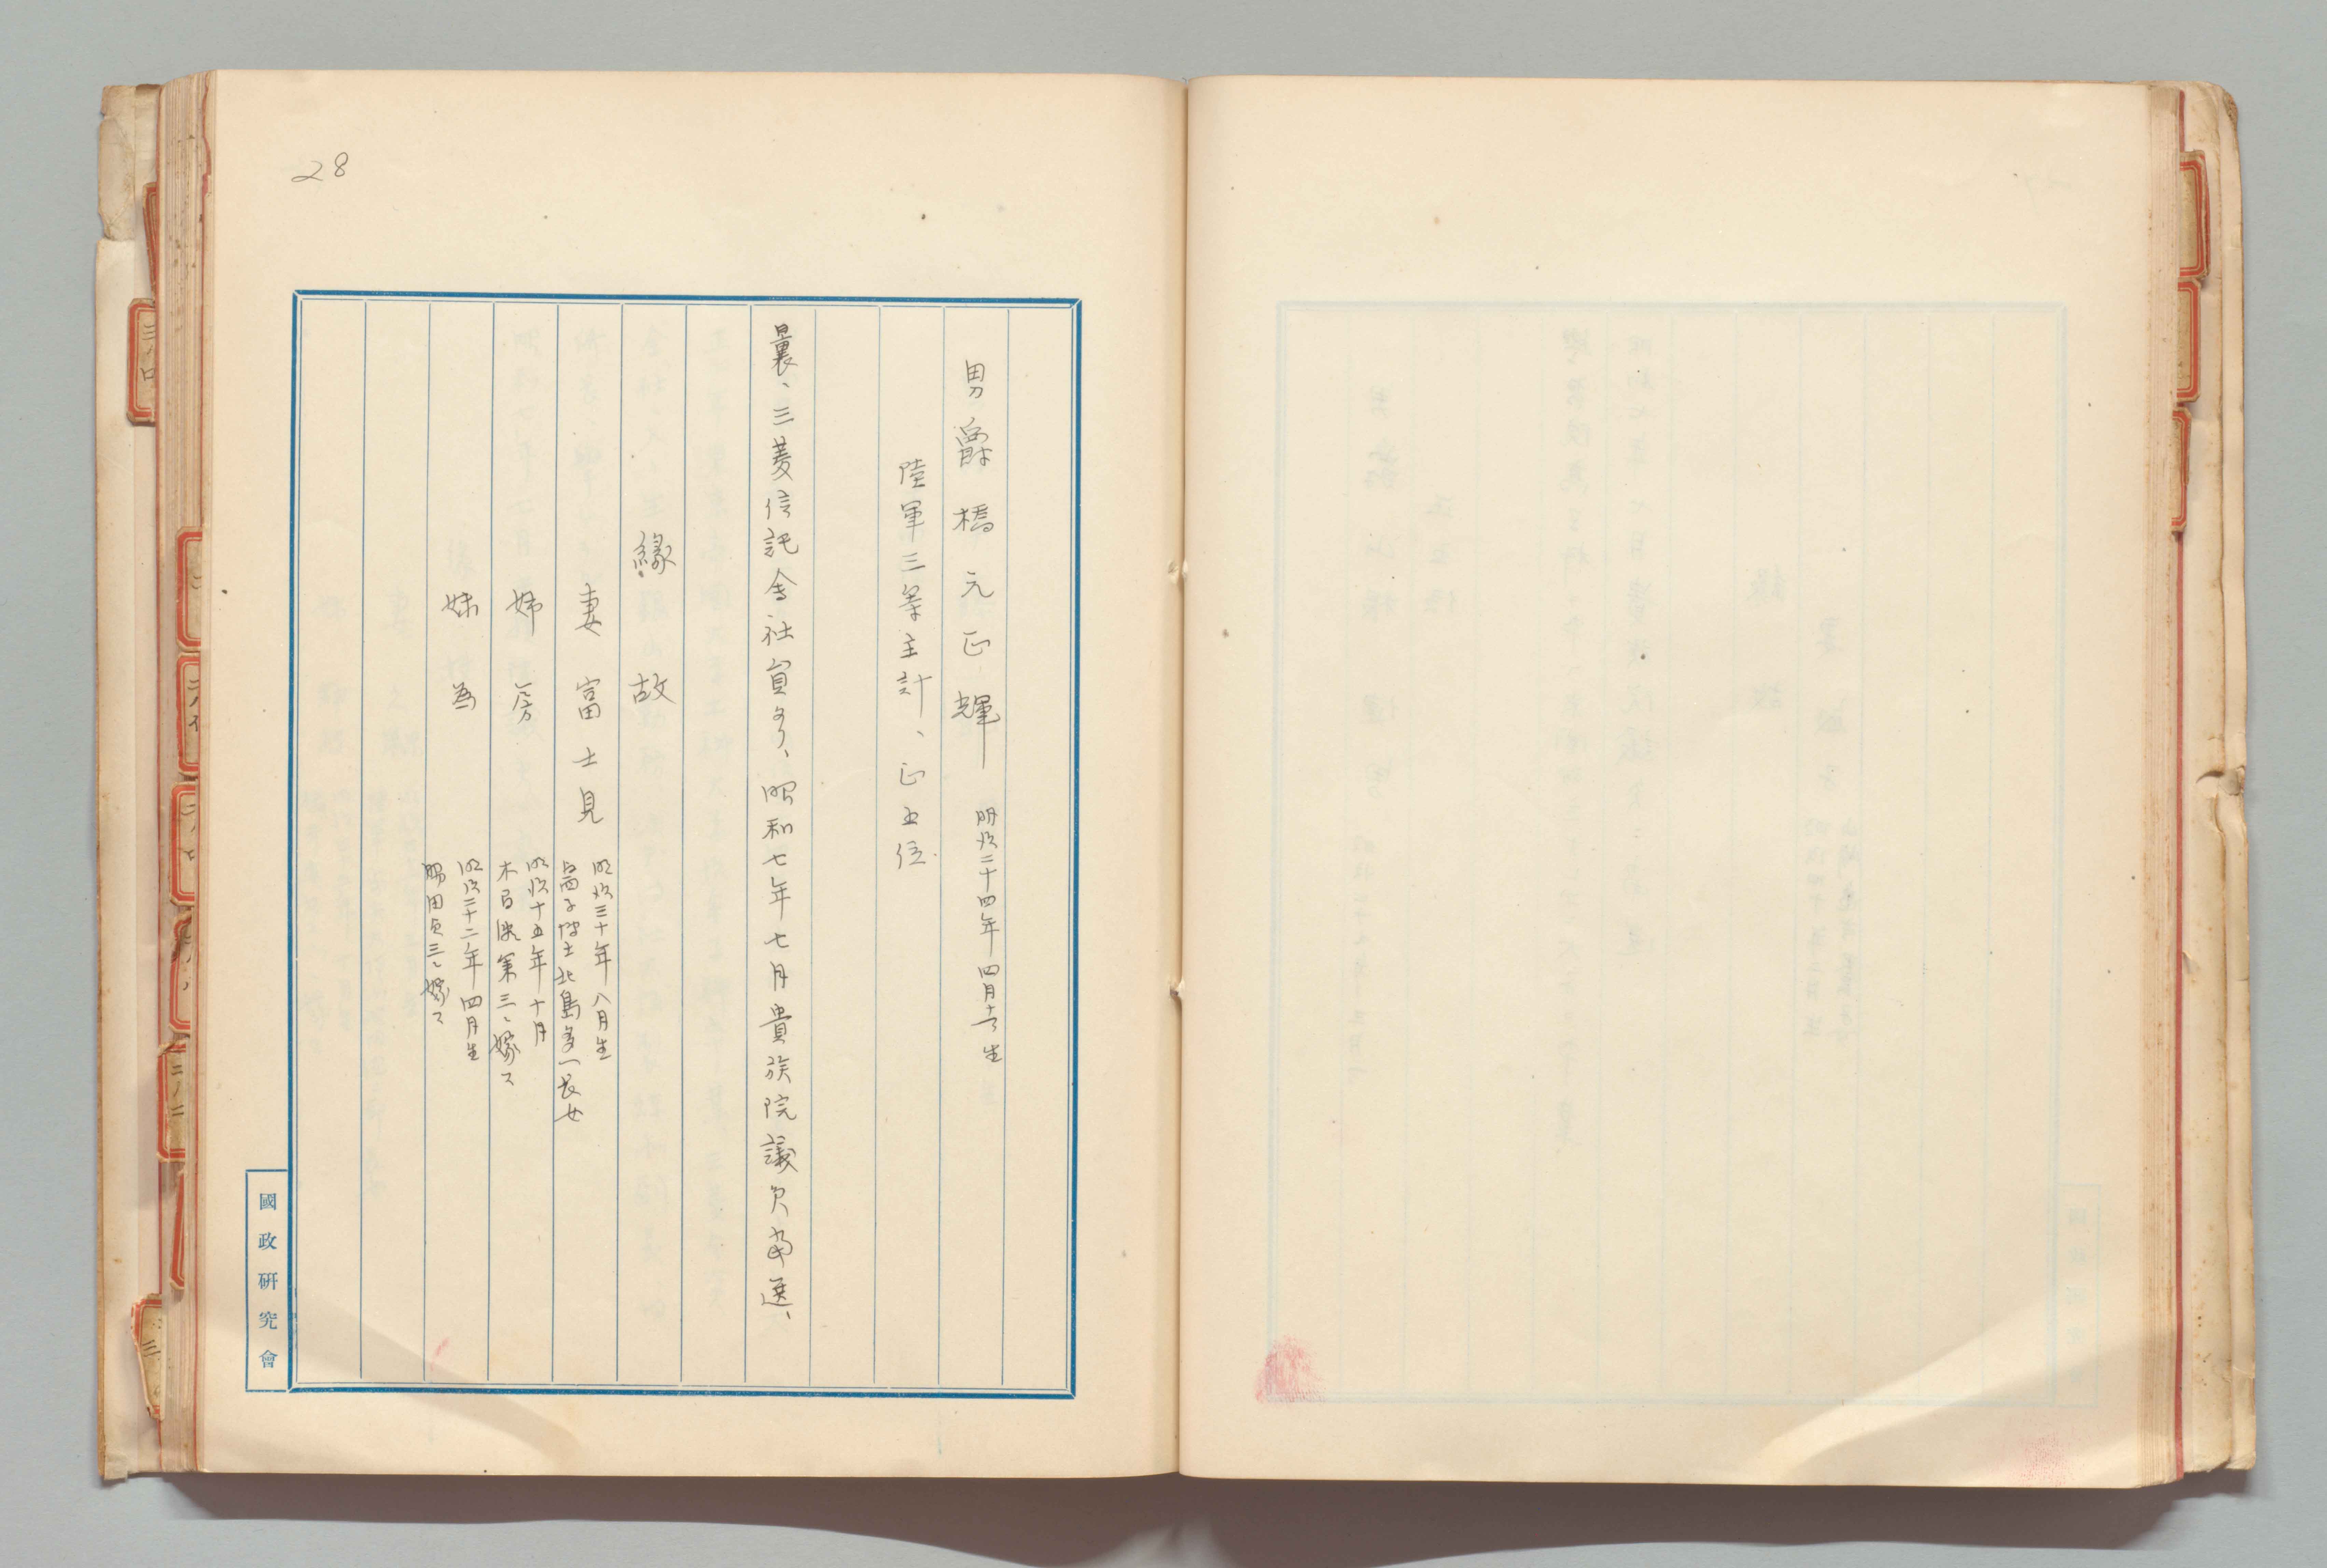 28
男爵 橋元正輝 明治二十四年四月生
陸軍三等主計、正五位
曩、三菱信託会社員タリ、昭和七年七月貴族院議員当選、
縁故
妻 富士見 明治三十年八月生
医学博士北島多一長女
姉 房 明治十五年十月
嫁ス
妹 為 明治二十二年四月生
勝田貞三ニ嫁ス
國政研究會